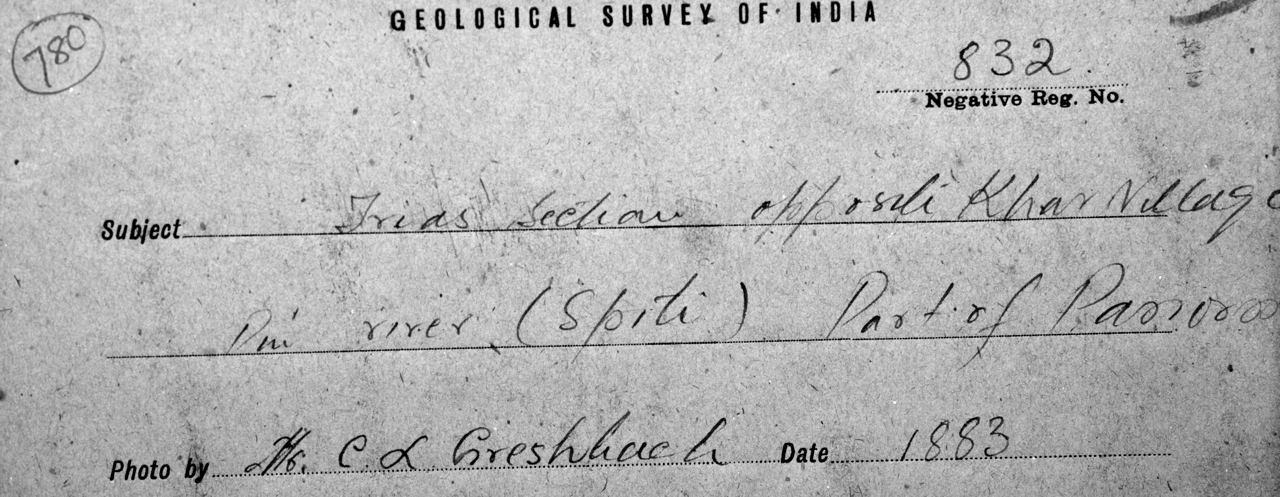 GEOLOGICAL SURVEY OF INDIA
780
832.
Negative Reg. No.
Subject Trias Section opposite Khar Village
Pin river (Spiti) Part of Panorama
Photo by Mr. C L Griesbach Date 1883